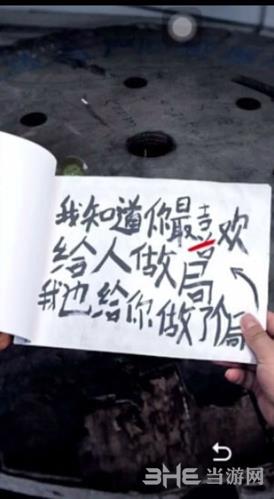 我知道你最喜欢
给人做局
我也给你做了个局
3HE 当游网
www.3h3.com